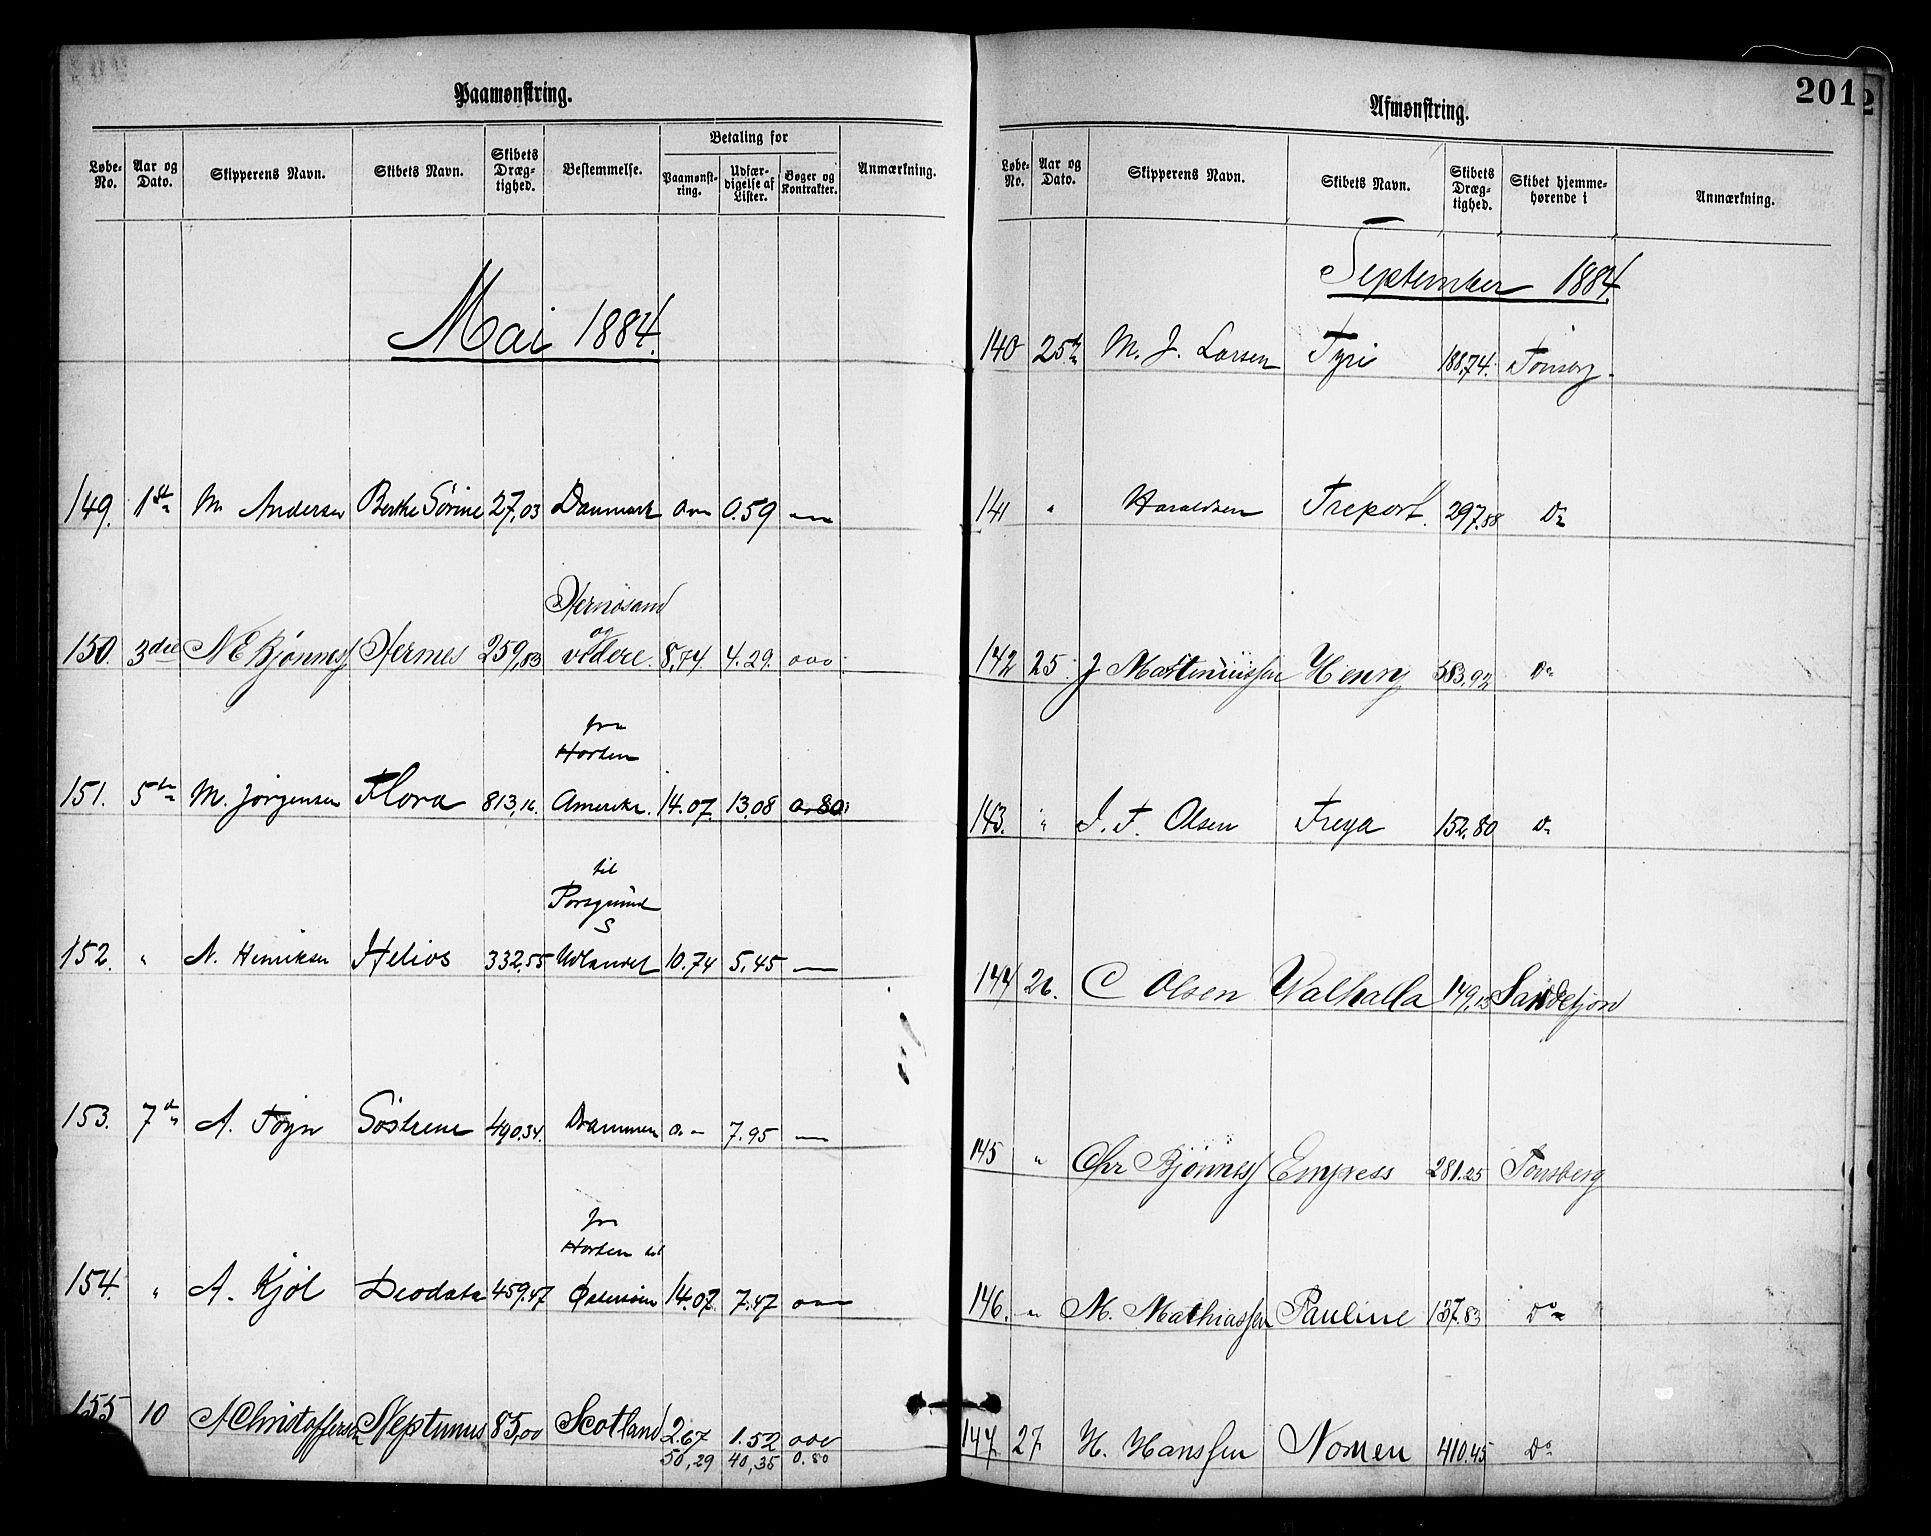 Paamønstring.
Løbe-No. Aar og Dato. Skipperens Navn. Skibets Navn. Skibets Dræg-tighed. Bestemmelse. Betaling for Paamønst-ring. Udfær-digelse af Lister. Bøger og Kontrakter. Anmærkning.
Mai 1884.
149. 1st M Andersen Berthe Sørine 27,03 Danmark 0.59
Hernøsand
og
150. 3die N E Bjønness Hermes 259,83 videre. 8,74 4.29. 000
fra
Horten
151. 5te M. Jørgensen Flora 813,16 Amerika. 14.07. 13,08 0.80
til
Porsgrund
152. " N. Henriksen Helios 332,55 Udlandet 10.74 5,45 —
153. 7de A. Føyn Søstrene 490.34. Drammen 0.- 7.95 —
fra
Horten til
154. " A. Kjøl Deodata 459.47 Østersøen 14.07. 7.47
155 10 A Christoffersen Neptunus 85,00 Scotland 2.67 1.52 000
50,29 40,35 0.80
201
2
Afmønstring.
Løbe-No. Aar og Dato. Skipperens Navn. Skibets Navn. Skibets Dræg-tighed. Skibet hjemme-hørende i Anmærkning.
September 1884.
140 25de M. J. Larsen Tyri 188,74. Tønsberg.
141 " Haraldsen Treport. 297.88 Do
142 25. J Martiniussen Henry 583,92 Do
143. " J. F. Olsen Freya 152,80 Do
144 26. C Olsen Walhalla 149,13 Sandefjord
145 " Chr Bjønness Empress 281.25 Tønsberg
146. " M. Mathiassen Pauline 137.83 Do
147. 27 H. Hanssen Nornen 410.45 Do